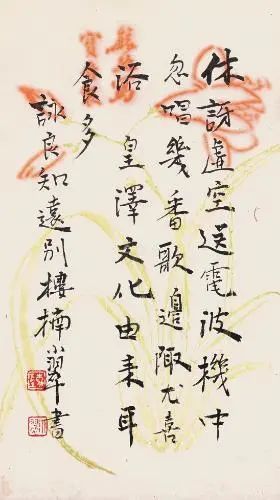 休訝虛空送電波機中
忽唱幾番歌邊陬尤喜
浴皇澤文化由來耳
食多
詠良知遠別樓楠小翠書